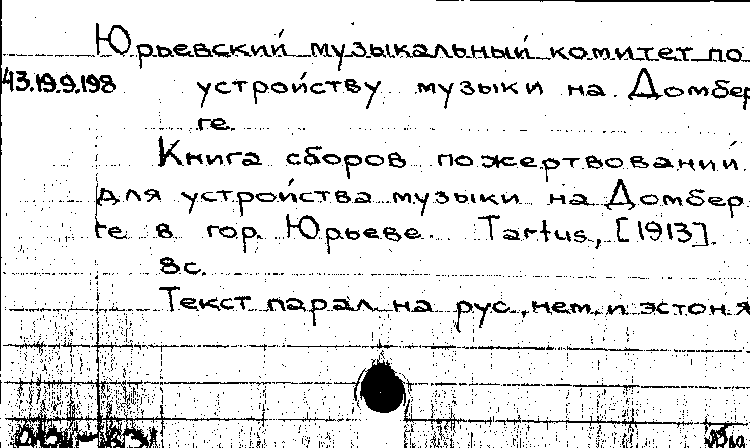 Юрьевский музыкальный комитет по
43.19.9.198 устройству музыки на Домбер
ге.
Книга сборов пожертвований
для устройства музыки на Домбер
ге в гор. Юрьеве. Tartus, [1913].
8с.
Текст парал. на рус., нем. и эстон. я